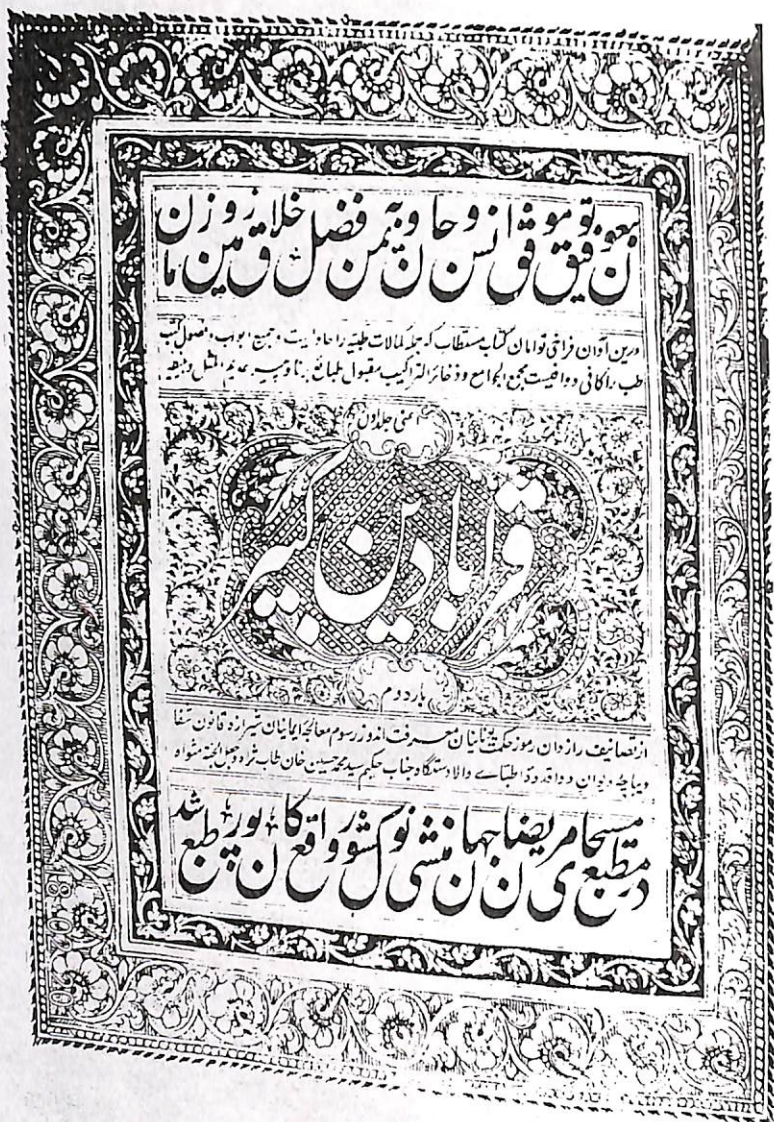 بعون توفیق موفق انس و جان و بیمن فضل خلاق زمین و زمن
درین اوان فراخی توامان کتاب مستطاب که جمله کمالات طبیه را حاوی است و جمیع ابواب و فصول کتب
طب را کافی و وافیست مجمع الجوامع و ذخائر التراکیب مقبول طبائع برنا و پیر عدیم المثل و
اعنی جلد اول
قرابادین کبیر
بار دوم
از تصانیف رازدان رموز حکمت یونانیان معرفت اندوز رسوم معالجه ایمانیان شیرازه قانون شفا
دیباچه دیوان دوا قدوه اطبای والا دستگاه جناب حکیم سید محمد حسین خان طاب ثراه و جعل الجنة مثواه
مسیحای مریضان جهان
در مطبع منشی نولکشور واقع کانپور طبع شد